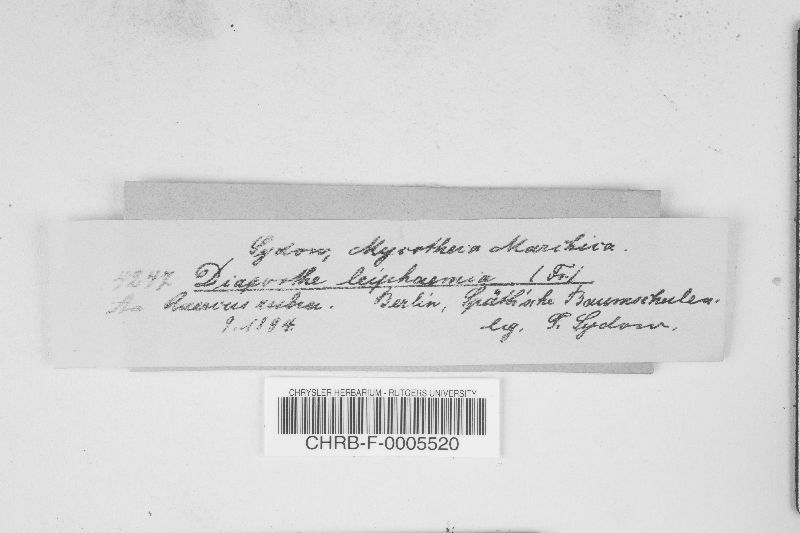 Sydow, Mycotheca Marchica.
4247 Diaporthe leiphaemia (Fr)
An Quercus rubra. Berlin, Späth'sche Baumschulen.
9. 1894. leg. P. Sydow.
CHRYSLER HERBARIUM - RUTGERS UNIVERSITY
CHRB-F-0005520